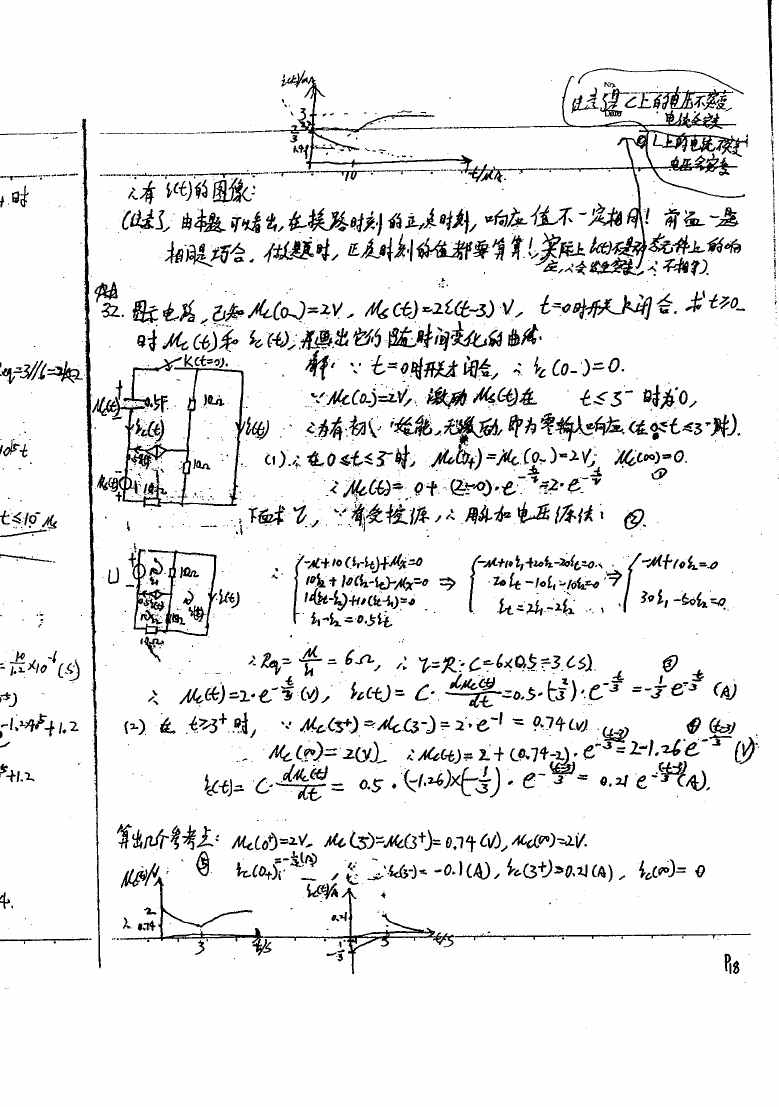 i(t)/mA
3
10
t/μs
过去了 C上的电压不突变
电流会突变
② L上的电流不突变
电压会突变
时
∴有i(t)的图像:
(注意), 由本题可以看出, 在换路时刻的正、负时刻, 响应值不一定相同! 前面一题
相同是巧合, 做题时, 正负时刻的值都要算算!
32. 图示电路, 已知 uc(0-)=2V, us(t)=2ε(t-3) V, t=0时开关K闭合. 求 t≥0-
时 uc(t) 和 ic(t), 并画出它们随时间变化的曲线.
K(t=0)
解: ∵ t=0时开关才闭合, ∴ ic(0-)=0.
Req=3//6=2kΩ
uc(t)
0.5F
10Ω
i(t)
∵ uc(0-)=2V, 激励 us(t)在 t≤3-时为0,
ic(t)
∴为有初始能, 无激励, 即为零输入响应. (在0≤t≤3-时).
10Ω
us(t)
10Ω
(1) ∴ 在 0≤t≤3-时, uc(0+)=uc(0-)=2V, uc(∞)=0. ①
∴ uc(t)= 0+(2-0)·e^{-t/τ}=2·e^{-t/τ}
下面求τ, ∵有受控源, ∴ 用外加电压源法: ②
U
10Ω
i(t)
10Ω
∴ { -u+10(i1-it)+ux=0
10i2+10(i2-it)-ux=0
10(it-i2)+10(it-i1)=0
i1-i2=0.5it
⇒ { -u+10i1+20i2-20it=0
20it-10i1-10i2=0
it=2i1-2i2
⇒ { -u+10i2=0
30i1-50i2=0
∴ Req= u/i1 = 6Ω, ∴ τ=R·C=6×0.5=3(s) ③
∴ uc(t)=2·e^{-t/3}(V), ic(t)= C·duc(t)/dt=0.5·(-2/3)·e^{-t/3}=-1/3 e^{-t/3} (A)
(2) 在 t≥3+时, ∵ uc(3+)=uc(3-)=2·e^{-1}=0.74(V) ④
uc(∞)=2(V) ∴uc(t)=2+(0.74-2)·e^{-(t-3)/3}=2-1.26e^{-(t-3)/3}(V)
ic(t)= C·duc(t)/dt = 0.5·(-1.26)×(-1/3)·e^{-(t-3)/3}=0.21e^{-(t-3)/3}(A).
算出几个参考点: uc(0+)=2V, uc(3-)=uc(3+)=0.74(V), uc(∞)=2V.
⑤ ic(0+)=-1/3(A), ic(3-)=-0.1(A), ic(3+)=0.21(A), ic(∞)=0
uc(t)/V
2
0.74
3
t/s
ic(t)/A
0.21
-1/3
3
t/s
P18